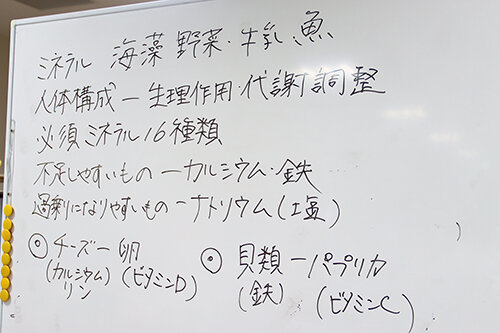 ミネラル 海藻 野菜・牛乳、魚
人体構成ー生理作用・代謝調整
必須ミネラル16種類
不足しやすいものーカルシウム・鉄
過剰になりやすいものーナトリウム(塩)
◎チーズー卵 ◎貝類ーパプリカ
(カルシウム) (ビタミンD) (鉄) (ビタミンC)
リン